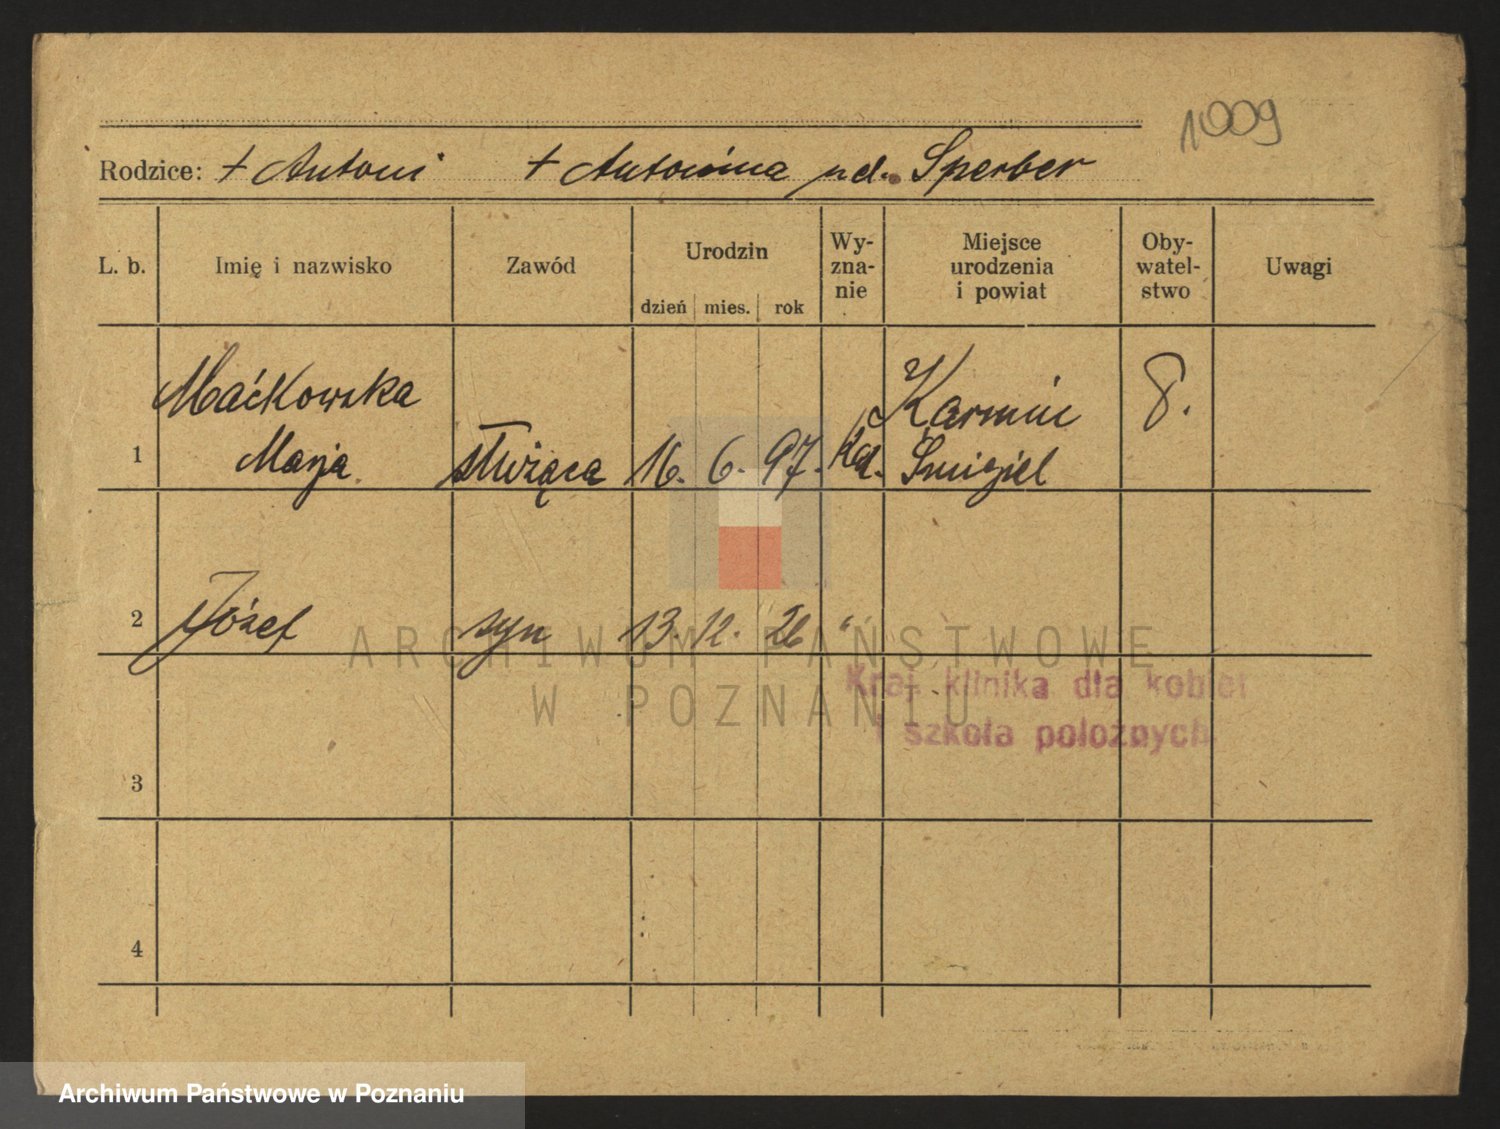 1009
Rodzice: + Antoni + Antonina ud. Sperber
L. b. Imię i nazwisko Zawód Urodzin dzień mies. rok Wy-zna-nie Miejsce urodzenia i powiat Oby-watel-stwo Uwagi
Maćkowska Karmin
1 Marja służąca 16. 6. 97. kat. Śmigiel
2 Józef syn 13. 12. 26 "
ARCHIWUM PAŃSTWOWE
Kraj. klinika dla kobiet
W POZNANIU
i szkoła położnych
3
4
Archiwum Państwowe w Poznaniu